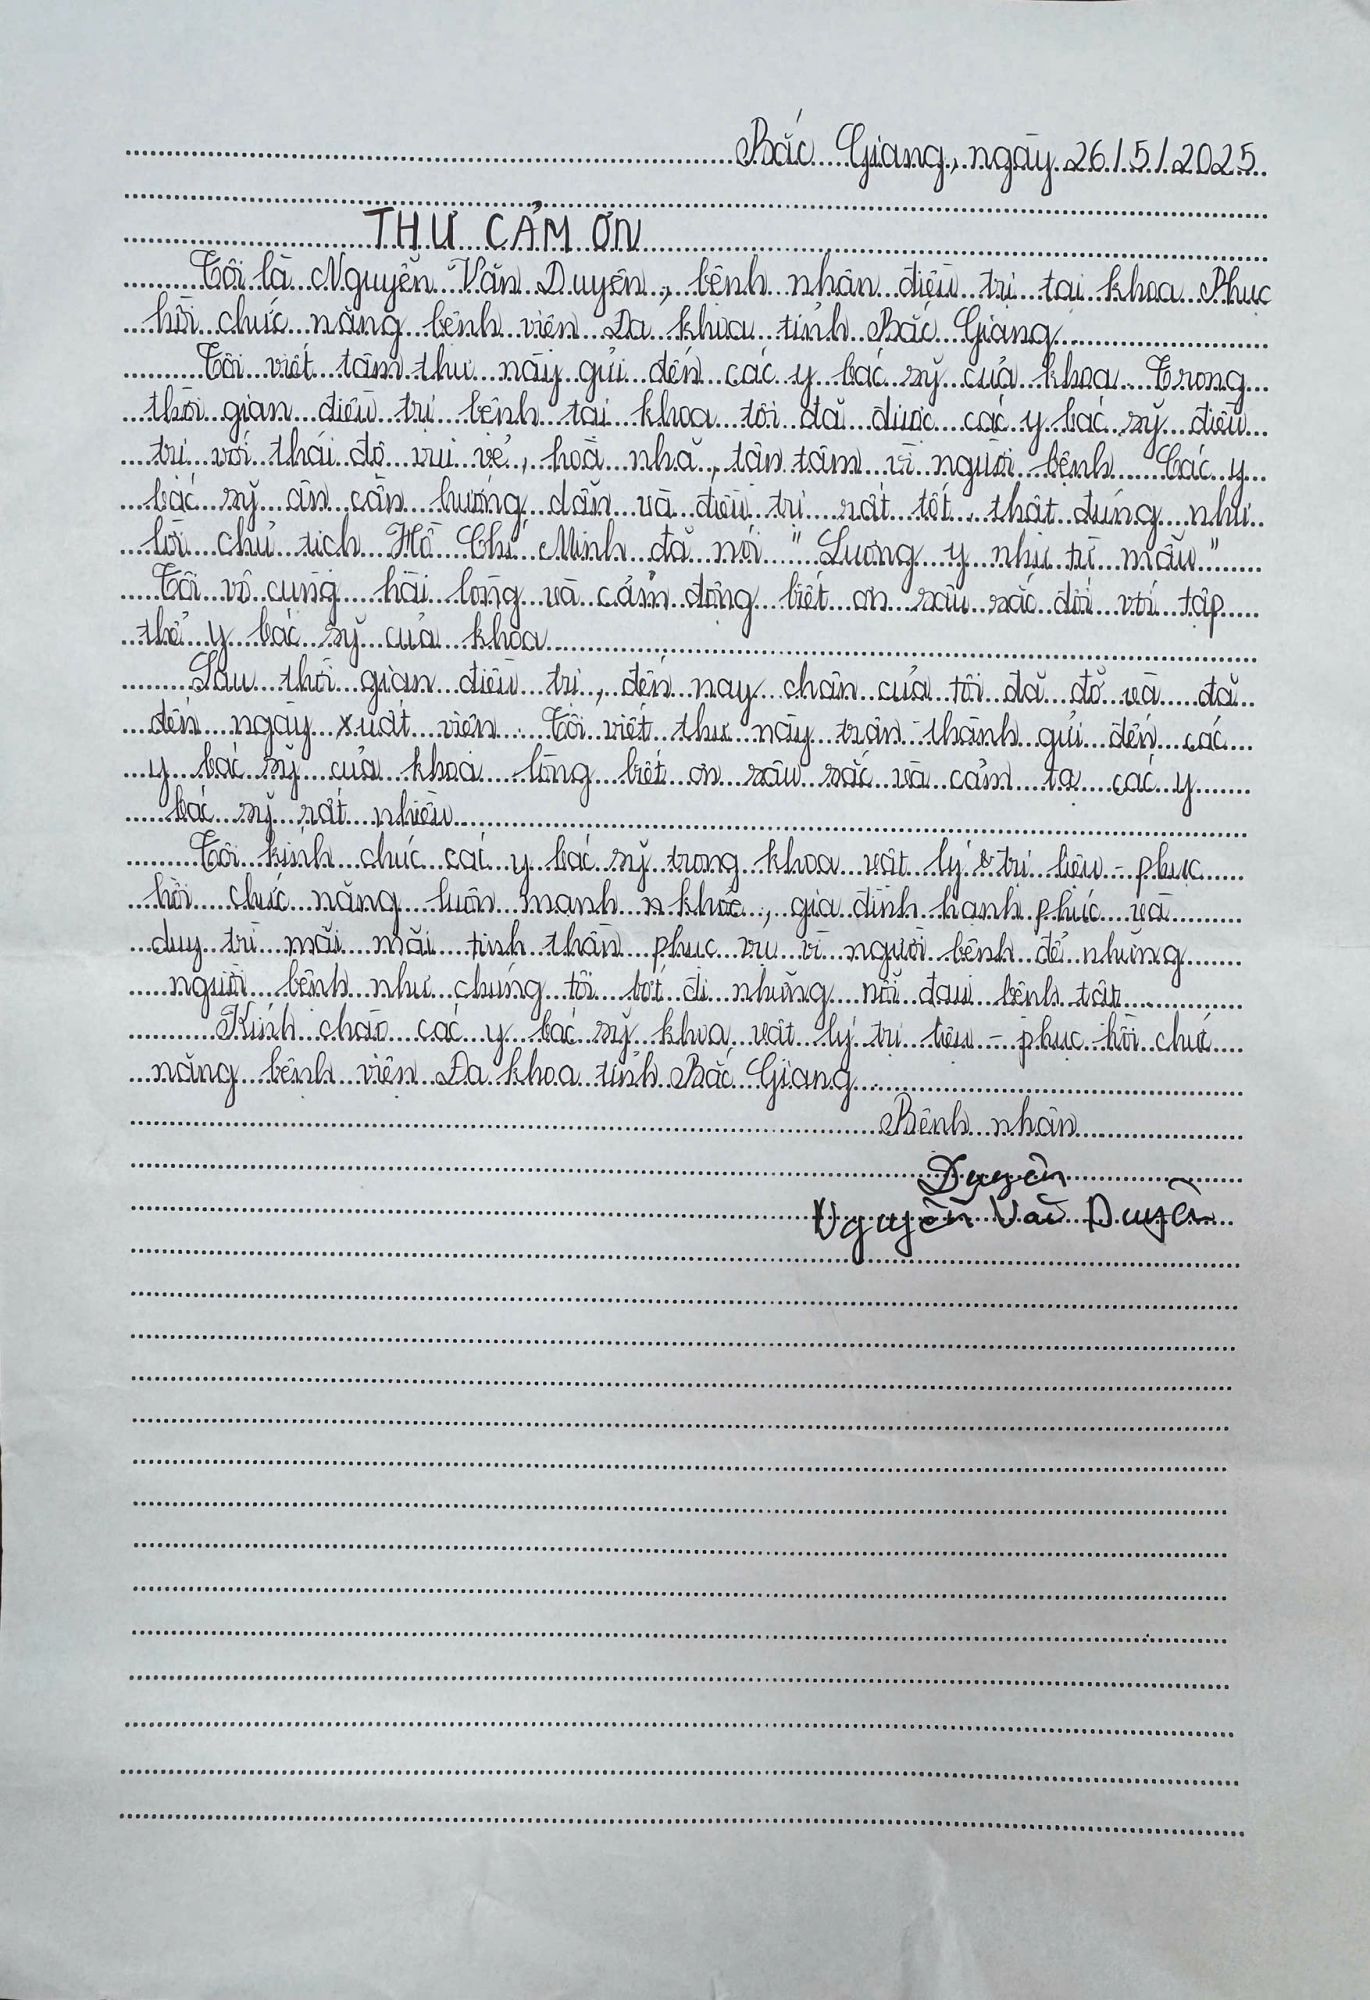 Bắc Giang, ngày 26/5/2025
THƯ CẢM ƠN
Tôi là Nguyễn Văn Duyên, bệnh nhân điều trị tại khoa Phục
hồi chức năng bệnh viện Đa khoa tỉnh Bắc Giang
Tôi viết tâm thư này gửi đến các y bác sỹ của khoa. Trong
thời gian điều trị bệnh tại khoa tôi đã được các y bác sỹ điều
trị với thái độ vui vẻ, hoà nhã, tận tâm vì người bệnh. Các y
bác sỹ ân cần hướng dẫn và điều trị rất tốt, thật đúng như
lời chủ tịch Hồ Chí Minh đã nói "Lương y như từ mẫu"
Tôi vô cùng hài lòng và cảm động biết ơn sâu sắc đối với tập
thể y bác sỹ của khoa
Sau thời gian điều trị, đến nay chân của tôi đã đỡ và đã
đến ngày xuất viện. Tôi viết thư này trân thành gửi đến các
y bác sỹ của khoa lòng biết ơn sâu sắc và cảm tạ các y
bác sỹ rất nhiều
Tôi kính chúc các y bác sỹ trong khoa vật lý trị liệu - phục
hồi chức năng luôn mạnh khỏe, gia đình hạnh phúc và
duy trì mãi mãi tinh thần phục vụ vì người bệnh để những
người bệnh như chúng tôi bớt đi những nỗi đau bệnh tật
Kính chào các y bác sỹ khoa vật lý trị liệu - phục hồi chức
năng bệnh viện Đa khoa tỉnh Bắc Giang
Bệnh nhân
Duyên
Nguyễn Văn Duyên